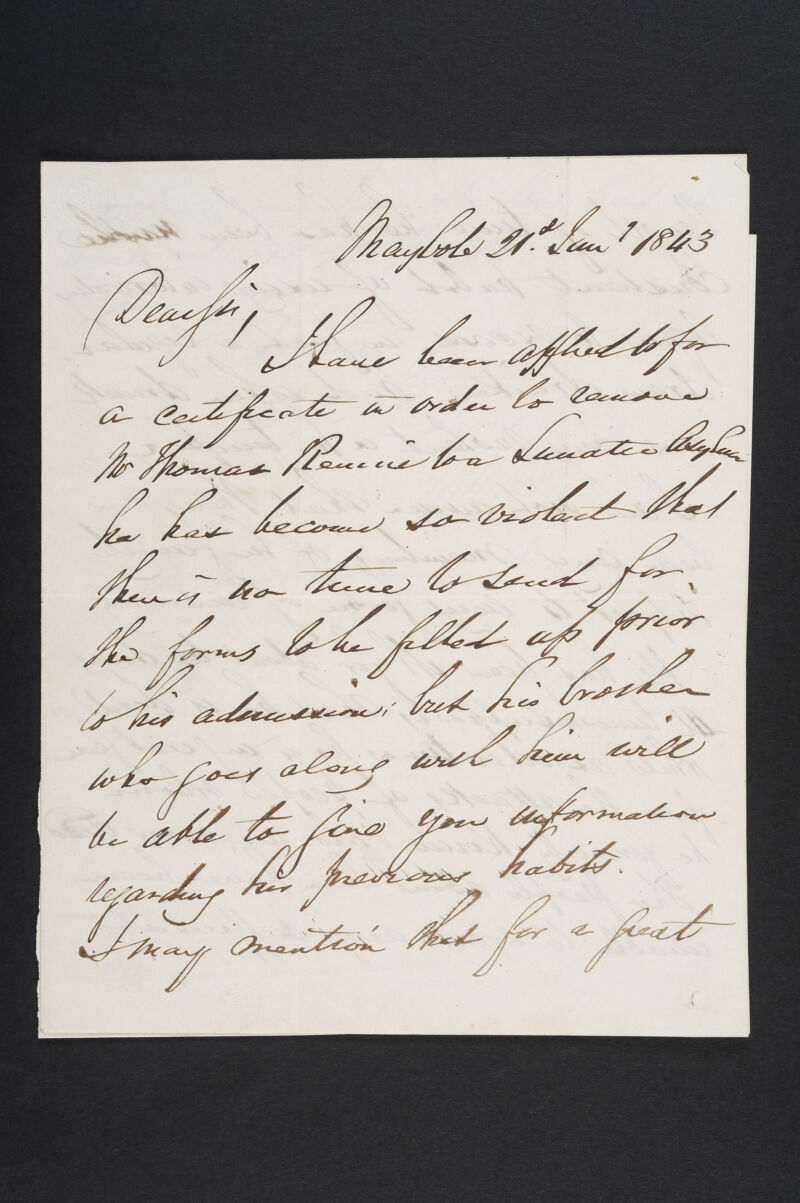 Maybole 21.st Jany 1843
Dear Sir,
I have been applied to for
a certificate in order to remove
Mr Thomas Rennie to a Lunatic Asylum
he has become so violent that
there is no time to send for
the forms to be filled up prior
to his admission; but his brother
who goes along with him will
be able to give you information
regarding his previous habits.
I may mention that for a great